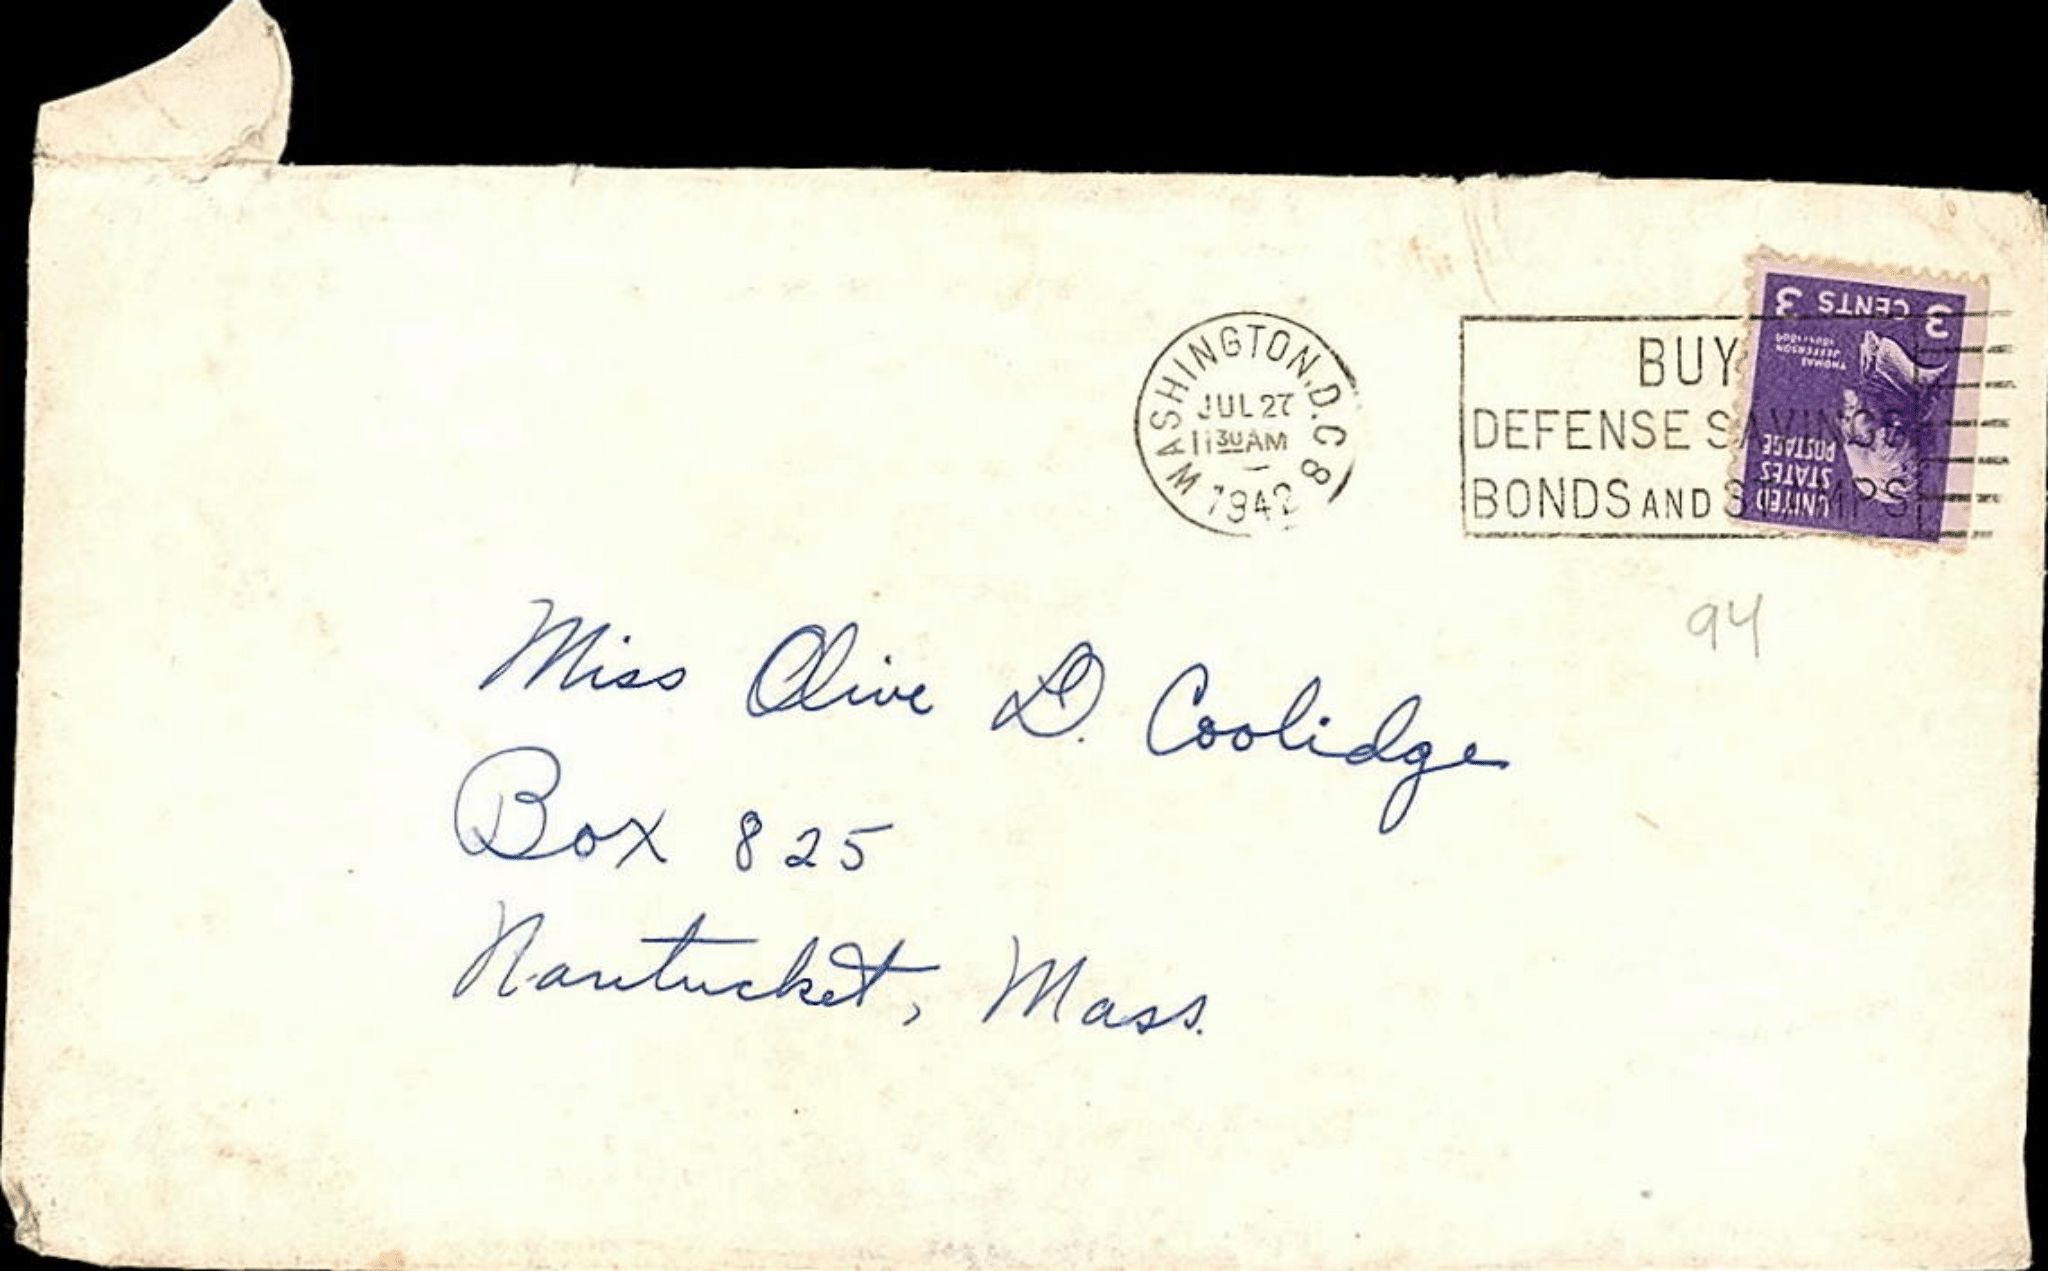 WASHINGTON, D.C. 8
JUL 27
11 30 AM
1942
BUY
DEFENSE SAVINGS
BONDS AND STAMPS
3 CENTS 3
THOMAS
JEFFERSON
1801-1809
UNITED
STATES
POSTAGE
94
Miss Olive D. Coolidge
Box 825
Nantucket, Mass.